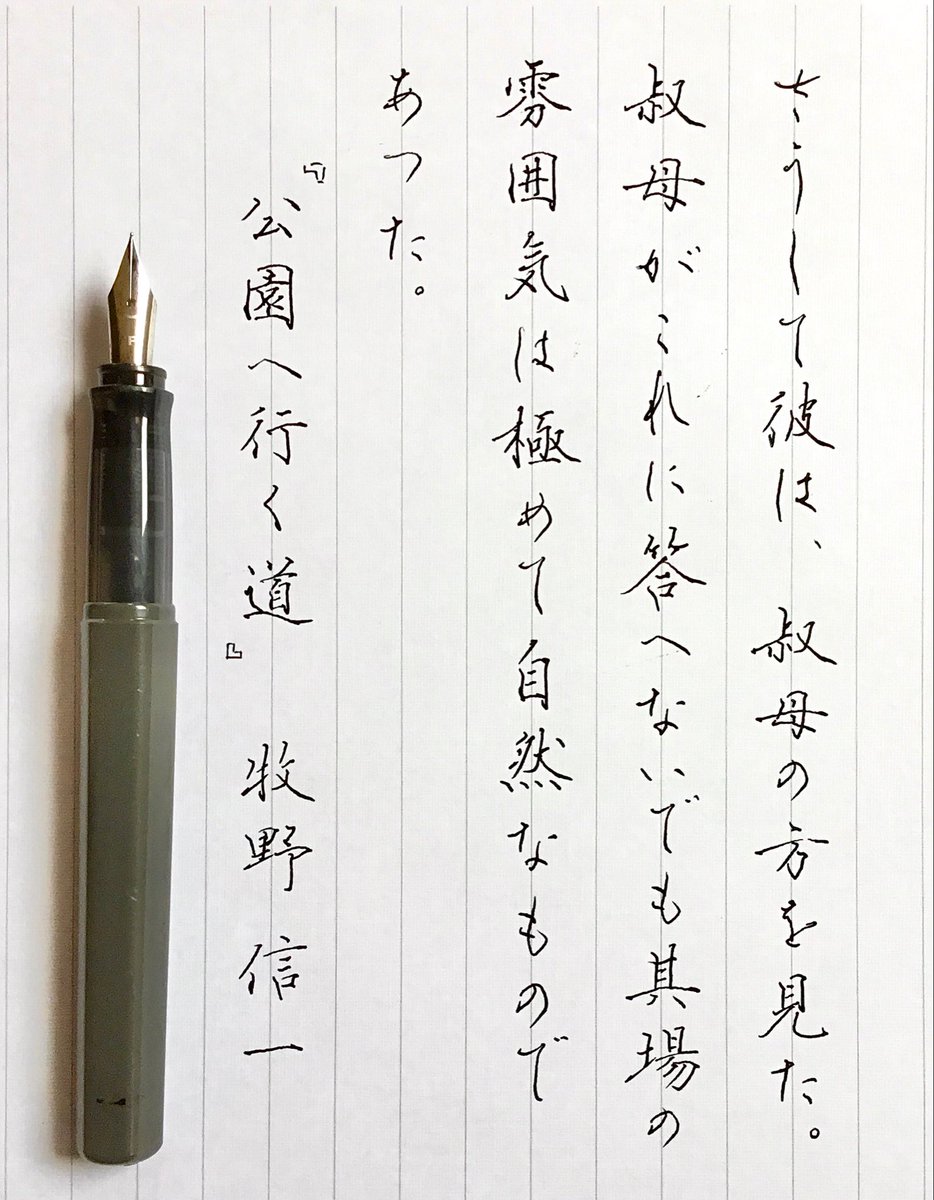 さうして彼は、叔母の方を見た。
叔母がこれに答へないでも其場の
雰囲気は極めて自然なもので
あつた。
『公園へ行く道』 牧野信一
F